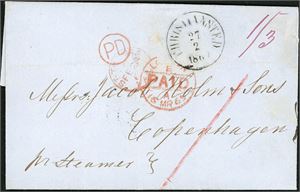 PD
CHRISTIANSTED
27
2
186
1/3
PAID
MR
Messrs Jacob Holm & Sons
Copenhagen
pr steamer